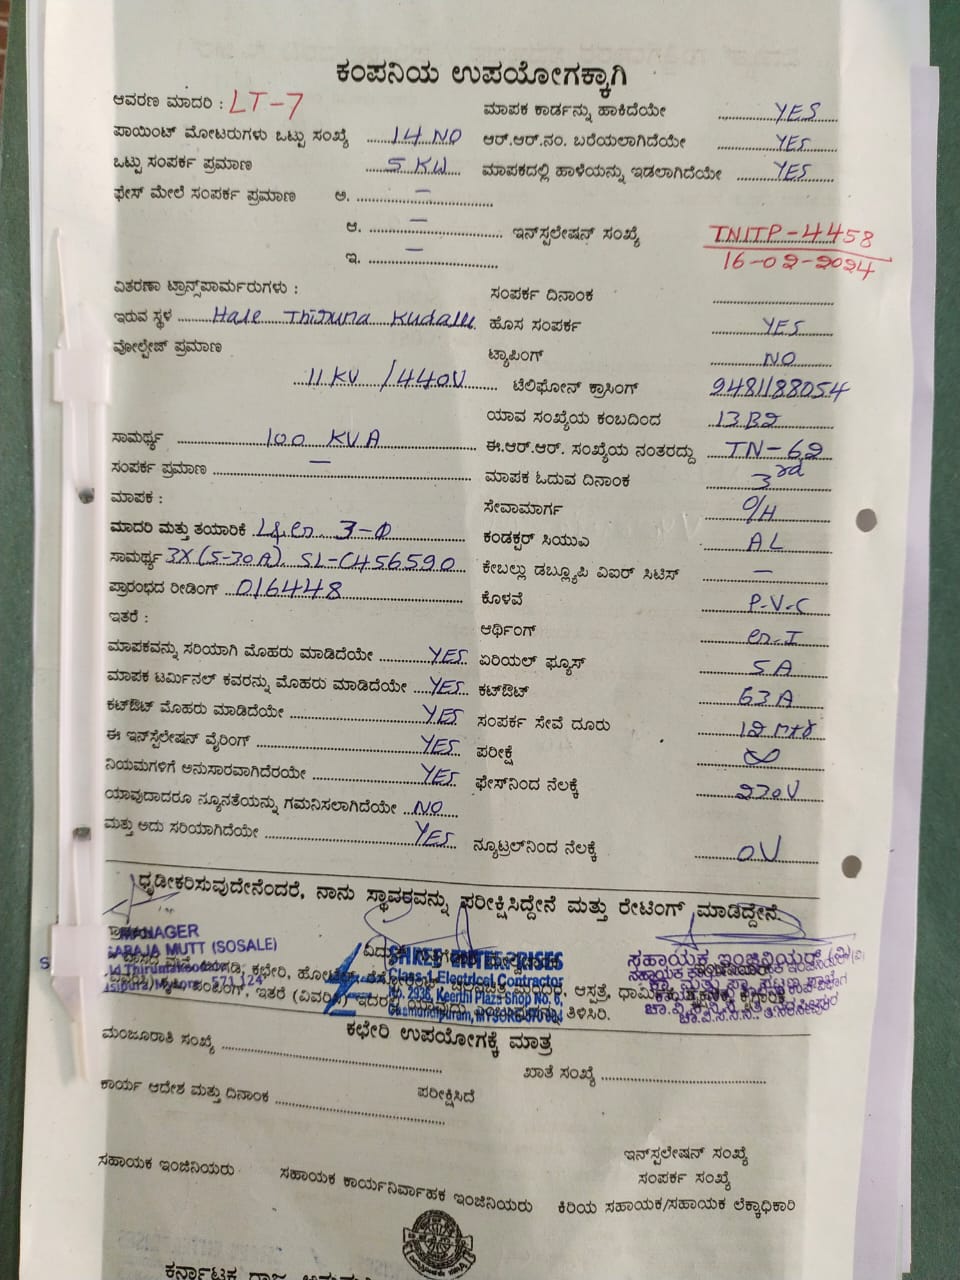 ಕಂಪನಿಯ ಉಪಯೋಗಕ್ಕಾಗಿ
ಆವರಣ ಮಾದರಿ : LT-7
ಮಾಪಕ ಕಾರ್ಡನ್ನು ಹಾಕಿದೆಯೇ YES
ಪಾಯಿಂಟ್ ಮೋಟರುಗಳು ಒಟ್ಟು ಸಂಖ್ಯೆ 14 NO
ಆರ್.ಆರ್.ನಂ. ಬರೆಯಲಾಗಿದೆಯೇ YES
ಒಟ್ಟು ಸಂಪರ್ಕ ಪ್ರಮಾಣ 5 KW
ಮಾಪಕದಲ್ಲಿ ಹಾಳೆಯನ್ನು ಇಡಲಾಗಿದೆಯೇ YES
ಫೇಸ್ ಮೇಲೆ ಸಂಪರ್ಕ ಪ್ರಮಾಣ ಅ. —
ಆ. —
ಇನ್‌ಸ್ಟಲೇಷನ್ ಸಂಖ್ಯೆ TNITP-4458
16-02-2024
ಇ. —
ವಿತರಣಾ ಟ್ರಾನ್ಸ್‌ಪಾರ್ಮರುಗಳು :
ಸಂಪರ್ಕ ದಿನಾಂಕ
ಇರುವ ಸ್ಥಳ Hale Thiruma Kudalu
ಹೊಸ ಸಂಪರ್ಕ YES
ವೋಲ್ಟೇಜ್ ಪ್ರಮಾಣ
ಟ್ಯಾಪಿಂಗ್ NO
11 KV / 440V
ಟೆಲಿಫೋನ್ ಕ್ರಾಸಿಂಗ್ 9481188054
ಯಾವ ಸಂಖ್ಯೆಯ ಕಂಬದಿಂದ 13B2
ಸಾಮರ್ಥ್ಯ 100 KVA
ಈ.ಆರ್.ಆರ್. ಸಂಖ್ಯೆಯ ನಂತರದ್ದು TN-62
ಸಂಪರ್ಕ ಪ್ರಮಾಣ —
ಮಾಪಕ ಓದುವ ದಿನಾಂಕ 3rd
ಮಾಪಕ :
ಸೇವಾಮಾರ್ಗ O/H
ಮಾದರಿ ಮತ್ತು ತಯಾರಿಕೆ 3-Φ
ಕಂಡಕ್ಟರ್ ಸಿಯುಎ AL
ಸಾಮರ್ಥ್ಯ 3X(5-30A). SL-C456590
ಕೇಬಲ್ಲು ಡಬ್ಲ್ಯೂಪಿ ವಿಐರ್ ಸಿಟಿಸ್ —
ಪ್ರಾರಂಭದ ರೀಡಿಂಗ್ 016448
ಕೊಳವೆ P-V-C
ಇತರೆ :
ಆರ್ಥಿಂಗ್
ಮಾಪಕವನ್ನು ಸರಿಯಾಗಿ ಮೊಹರು ಮಾಡಿದೆಯೇ YES
ಏರಿಯಲ್ ಫ್ಯೂಸ್ 5A
ಮಾಪಕ ಟರ್ಮಿನಲ್ ಕವರನ್ನು ಮೊಹರು ಮಾಡಿದೆಯೇ YES
ಕಟ್‌ಔಟ್ 63A
ಕಟ್‌ಔಟ್ ಮೊಹರು ಮಾಡಿದೆಯೇ YES
ಸಂಪರ್ಕ ಸೇವೆ ದೂರು 12
ಈ ಇನ್‌ಸ್ಟೆಲೇಷನ್ ವೈರಿಂಗ್ YES
ಪರೀಕ್ಷೆ ∞
ನಿಯಮಗಳಿಗೆ ಅನುಸಾರವಾಗಿದೆರಯೇ YES
ಫೇಸ್‌ನಿಂದ ನೆಲಕ್ಕೆ 230V
ಯಾವುದಾದರೂ ನ್ಯೂನತೆಯನ್ನು ಗಮನಿಸಲಾಗಿದೆಯೇ NO
ಮತ್ತು ಅದು ಸರಿಯಾಗಿದೆಯೇ YES
ನ್ಯೂಟ್ರಲ್‌ನಿಂದ ನೆಲಕ್ಕೆ 0V
ಧೃಡೀಕರಿಸುವುದೇನೆಂದರೆ, ನಾನು ಸ್ಥಾವರವನ್ನು ಪರೀಕ್ಷಿಸಿದ್ದೇನೆ ಮತ್ತು ರೇಟಿಂಗ್ ಮಾಡಿದ್ದೇನೆ
MANAGER
MUTT (SOSALE)
SHREE ENTERPRISES
ಸಹಾಯಕ ಇಂಜಿನಿಯರ್ (ವಿ)
Class-1 Electrical Contractor
No. 2936, Keerthi Plaza Shop No. 6,
571 124
ಇತರೆ (ವಿವರಿಸಿ) ಇದರಲ್ಲಿ ತಿಳಿಸಿರಿ.
ಕಛೇರಿ ಉಪಯೋಗಕ್ಕೆ ಮಾತ್ರ
ಮಂಜೂರಾತಿ ಸಂಖ್ಯೆ
ಖಾತೆ ಸಂಖ್ಯೆ
ಕಾರ್ಯ ಆದೇಶ ಮತ್ತು ದಿನಾಂಕ
ಪರೀಕ್ಷಿಸಿದೆ
ಇನ್‌ಸ್ಟಲೇಷನ್ ಸಂಖ್ಯೆ
ಸಂಪರ್ಕ ಸಂಖ್ಯೆ
ಸಹಾಯಕ ಇಂಜಿನಿಯರು
ಸಹಾಯಕ ಕಾರ್ಯನಿರ್ವಾಹಕ ಇಂಜಿನಿಯರು
ಕಿರಿಯ ಸಹಾಯಕ/ಸಹಾಯಕ ಲೆಕ್ಕಾಧಿಕಾರಿ